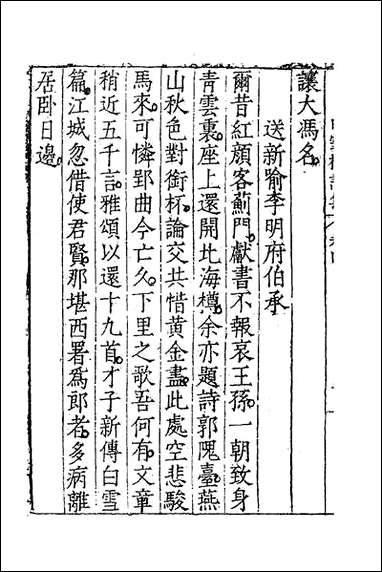 讓大馮名
送新喻李明府伯承
爾昔紅顏客薊門獻書不報哀王孫一朝致身
青雲裏座上還開北海樽余亦題詩郭隗臺燕
山秋色對銜杯論交共惜黃金盡此處空悲駿
馬來可憐郢曲今亡久下里之歌吾何有文章
稍近五千言雅頌以還十九首才子新傳白雪
篇江城忽借使君賢那堪西署爲郎者多病離
居卧日邊